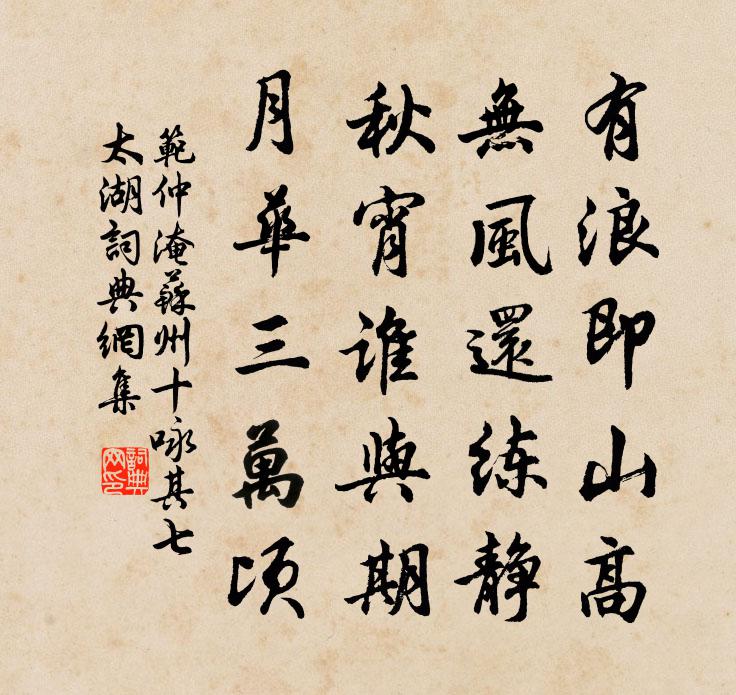 有浪即山高
無風還练静
秋宵誰與期
月華三萬頃
範仲淹蘇州十咏其七
太湖詞典網集
詞典网印